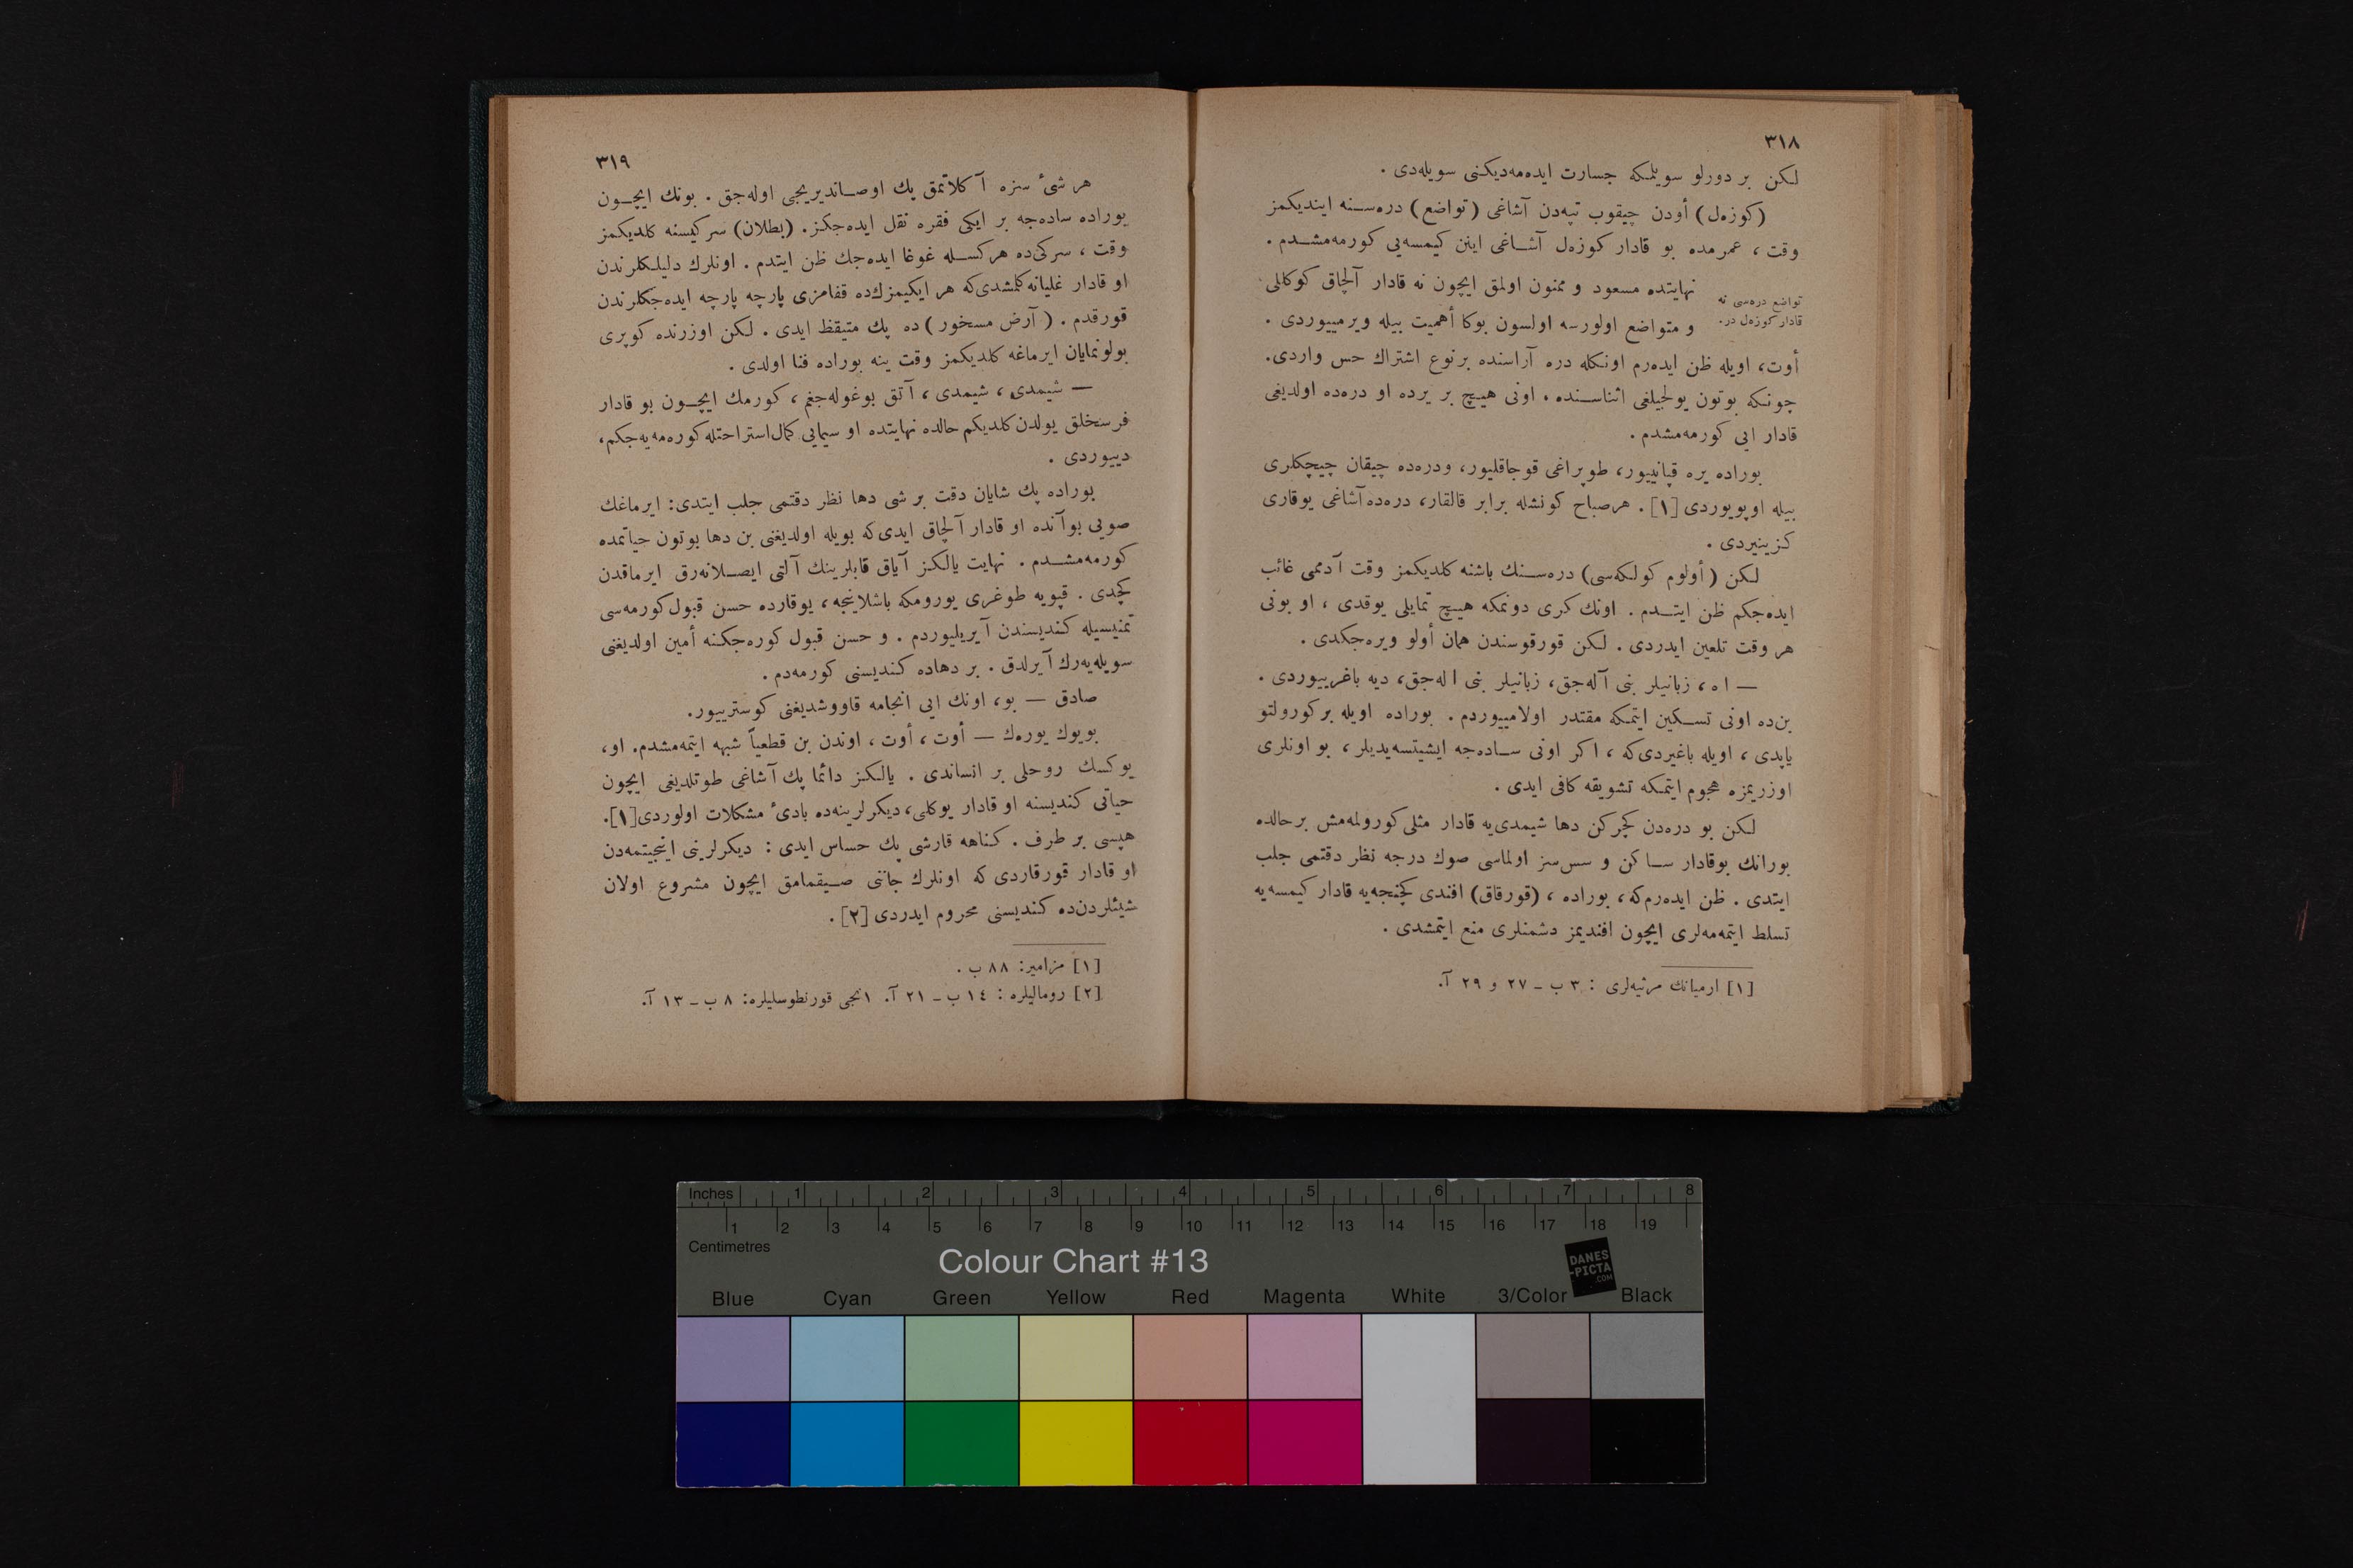 ٣١٨
لكن بر دورلو سويلمكه جسارت ايده‌مه‌ديكنى سويله‌دى .
(كوزه‌ل) أودن چيقوب تپه‌دن آشاغى (تواضع) دره‌سنه اينديكمز
وقت ، عمرمده بو قادار كوزه‌ل آشاغى اينن كيمسه‌يى كورمه‌مشدم .
نهايتده مسعود و ممنون اولمق ايچون نه قادار آلچاق كوكللى
تواضع دره‌سى نه
قادار كوزه‌ل در.
و متواضع اولورسه اولسون بوكا أهميت بيله ويرمييوردى .
أوت، اويله ظن ايده‌رم اونكله دره آراسنده برنوع اشتراك حس واردى.
چونكه بوتون يولجيلغى اثناسنده . اونى هيچ بر يرده او دره‌ده اولديغى
قادار ايى كورمه‌مشدم .
بوراده يره قپانييور، طوپراغى قوجاقليور، ودره‌ده چيقان چيچكلرى
بيله اوپويوردى [١] . هرصباح كونشله برابر قالقار، دره‌ده آشاغى يوقارى
كزينيردى .
لكن (أولوم كولكه‌سى) دره‌سنك باشنه كلديكمز وقت آدممى غائب
ايده‌جكم ظن ايتدم . اونك كرى دونمكه هيچ تمايلى يوقدى ، او بونى
هر وقت تلعين ايدردى . لكن قورقوسندن همان أولو ويره‌جكدى .
— اه ، زبانيلر بنى آله‌جق، زبانيلر بنى اله‌جق، ديه باغرييوردى .
بن‌ده اونى تسكين ايتمكه مقتدر اولامييوردم . بوراده اويله بركورولتو
ياپدى ، اويله باغيردى‌كه ، اكر اونى ساده‌جه ايشيتسه‌يديلر ، بو اونلرى
اوزريمزه هجوم ايتمكه تشويقه كافى ايدى .
لكن بو دره‌دن كچركن دها شيمدى‌يه قادار مثلى كورولمه‌مش برحالده
بورانك بوقادار ساكن و سس‌سز اولماسى صوك درجه نظر دقتمى جلب
ايتدى . ظن ايده‌رم‌كه، بوراده ، (قورقاق) افندى كچنجه‌يه قادار كيمسه‌يه
تسلط ايتمه‌مه‌لرى ايچون افنديمز دشمنلرى منع ايتمشدى .
[١] ارميانك مرثيه‌لرى : ٣ ب – ٢٧ و ٢٩ آ.
٣١٩
هر شئ سزه آكلاتمق پك اوصانديريجى اوله‌جق . بونك ايچون
بوراده ساده‌جه بر ايكى فقره نقل ايده‌جكز. (بطلان) سركيسنه كلديكمز
وقت ، سركى‌ده هركسله غوغا ايده‌جك ظن ايتدم . اونلرك دليلكلرندن
او قادار غليانه كلمشدى‌كه هر ايكيمزك‌ده قفامزى پارچه پارچه ايده‌جكلرندن
قورقدم . (آرض مسخور) ده پك متيقظ ايدى . لكن اوزرنده كوپرى
بولونمايان ايرماغه كلديكمز وقت ينه بوراده فنا اولدى .
— شيمدى ، شيمدى ، آتق بوغوله‌جغم ، كورمك ايچون بو قادار
فرسخلق يولدن كلديكم حالده نهايتده او سيمايى كمال‌استراحتله كوره‌مه‌يه‌جكم،
دييوردى .
بوراده پك شايان دقت بر شى دها نظر دقتمى جلب ايتدى: ايرماغك
صويى بوآنده او قادار آلچاق ايدى‌كه بويله اولديغنى بن دها بوتون حياتمده
كورمه‌مشدم . نهايت يالكز آياق قابلرينك آلتى ايصلانه‌رق ايرماقدن
كچدى . قپويه طوغرى يورومكه باشلاينجه، يوقارده حسن قبول كورمه‌سى
تمنيسيله كنديسندن آيريليوردم . و حسن قبول كوره‌جكنه أمين اولديغنى
سويله‌يه‌رك آيرلدق . بر دهاده كنديسنى كورمه‌دم .
صادق — بو، اونك ايى انجامه قاووشديغنى كوسترييور.
بويوك يوره‌ك — أوت ، أوت ، اوندن بن قطعياً شبهه ايتمه‌مشدم. او،
يوكسك روحلى بر انساندى . يالكز دائما پك آشاغى طوتلديغى ايچون
حياتى كنديسنه او قادار يوكلى، ديكرلرينه‌ده بادئ مشكلات اولوردى[١].
هپسى بر طرف . كناهه قارشى پك حساس ايدى : ديكرلرينى اينجيتمه‌دن
او قادار قورقاردى كه اونلرك جاننى صيقمامق ايچون مشروع اولان
شيئلردن‌ده كنديسنى محروم ايدردى [٢] .
[١] مزامير: ٨٨ ب .
[٢] روماليلره : ١٤ ب – ٢١ آ. ١نجى قورنطوسليلره: ٨ ب – ١٣ آ.
Inches 1 2 3 4 5 6 7 8
1 2 3 4 5 6 7 8 9 10 11 12 13 14 15 16 17 18 19
Centimetres
Colour Chart #13
DANES
-PICTA
.COM
Blue Cyan Green Yellow Red Magenta White 3/Color Black